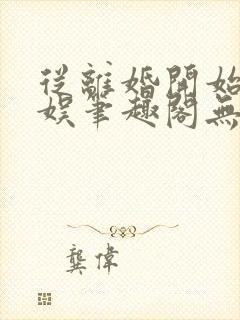 從離婚開始
娛筆趣閣無
龔偉